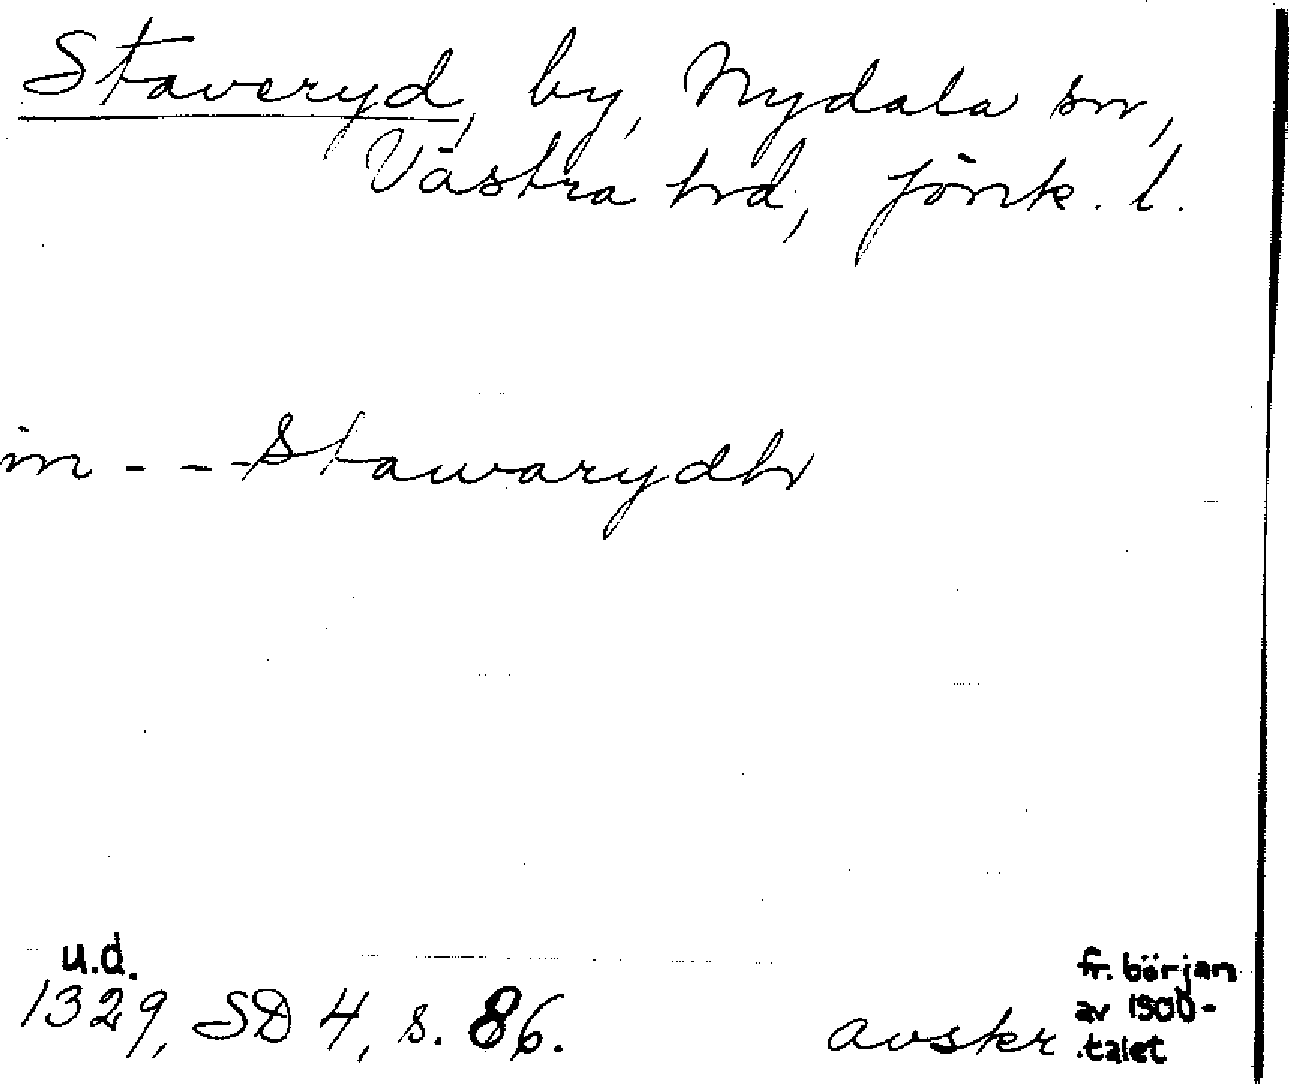 Staveryd, by, Nydala sn,
Västra hd, Jönk. l.
in - - - Stawarydh
u.d.
1329, SD 4, s. 86.
avskr. fr. början
av 1500-
talet